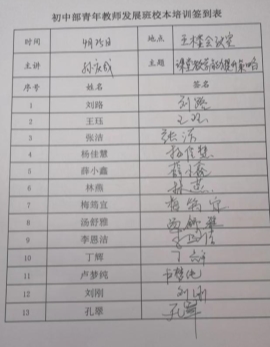 初中部青年教师发展班校本培训签到表
时间 4月25日 地点 主楼会议室
主讲 孙庆成 主题 课堂教学有效提升策略
序号 姓名 签名
1 刘路 刘路
2 王珏 王珏
3 张洁 张洁
4 杨佳慧 杨佳慧
5 薛小鑫 薛小鑫
6 林燕 林燕
7 梅筠宜
8 汤舒雅
9 李恩洁
10 丁辉 丁辉
11 卢梦纯 卢梦纯
12 刘刚 刘刚
13 孔翠 孔翠